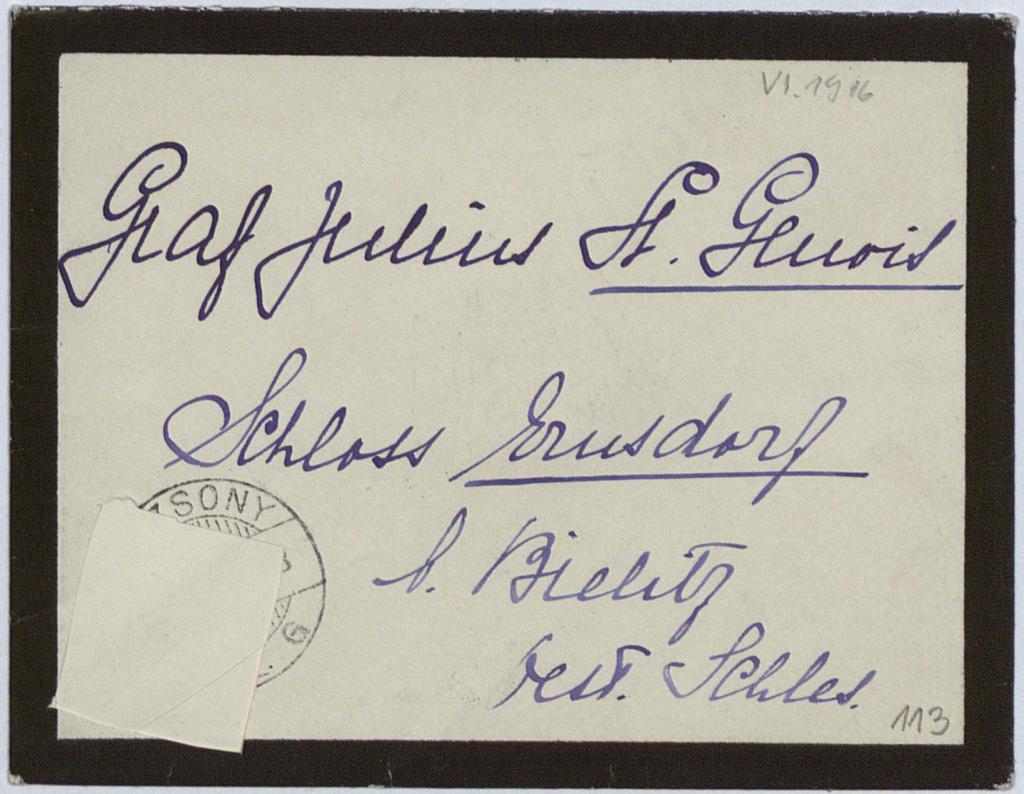 VI. 1916
Graf Julius St. Genois
Schloss Ernsdorf
SONY
b. Bielitz
G
oest. Schles.
113